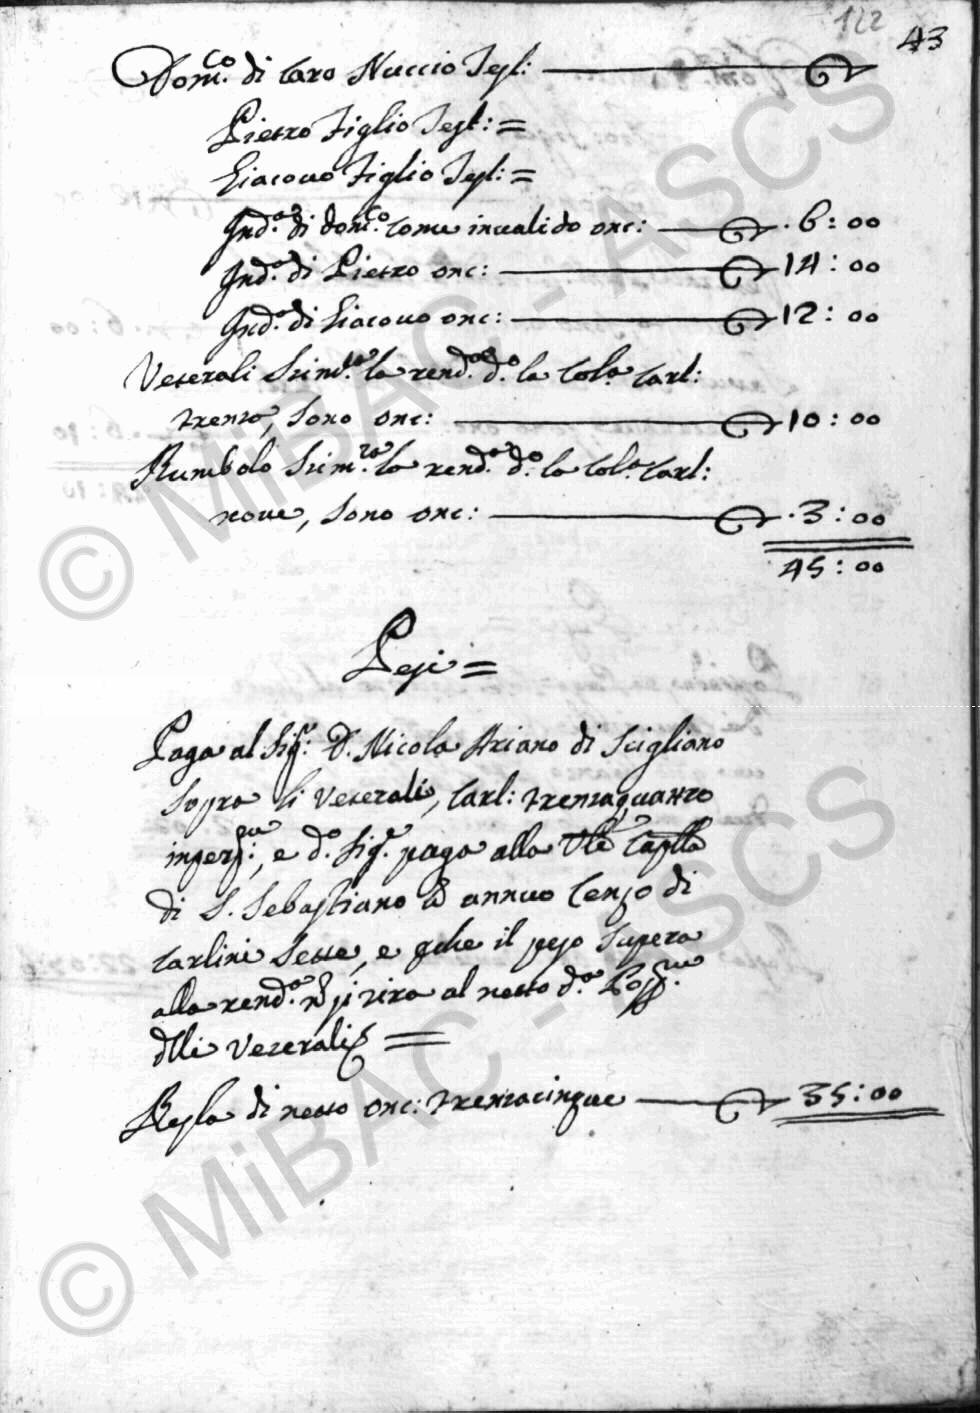 122
43
Dom.co di Caro Nuccio Tesl:
Pietro Figlio Tesl: =
Giacovo Figlio Tesl: =
Ind.a di Dom.co come invalido onc: 6 : 00
Ind.a di Pietro onc: 14 : 00
Ind.a di Giacovo onc: 12 : 00
Veterali stim.ta la rend.a d.a la Col.a Carl:
trenta, sono onc: 10 : 00
Rumbolo stim.ta la rend.a d.a la Col.a Carl:
nove, sono onc: 3 : 00
45 : 00
Pesi =
Paga al Sig.r D. Nicola Ariano di Scigliano
sopra li Veterali, Carl: trentaquattro
inperp.um, e d.o Sig.e paga alla Vle Caplla
di S. Sebastiano D annuo Cenzo di
Carlini sette, e pche il peso supera
alla rend.a n si tira al netto d.a Poss.ne
dlli Veterali =
Resla di netto onc: trentacinque 35 : 00
© MiBAC - ASCS
© MiBAC - ASCS